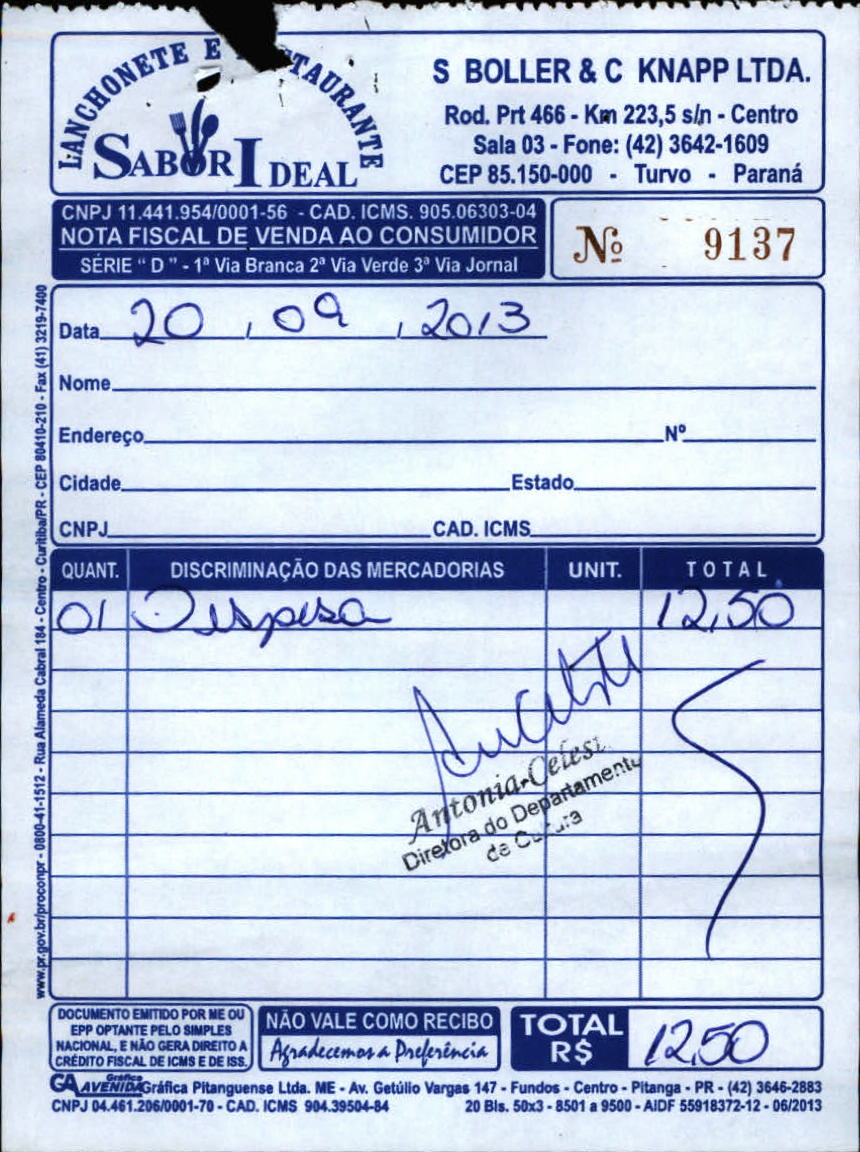 LANCHONETE E RESTAURANTE
SABOR IDEAL
S BOLLER & C KNAPP LTDA.
Rod. Prt 466 - Km 223,5 s/n - Centro
Sala 03 - Fone: (42) 3642-1609
CEP 85.150-000 - Turvo - Paraná
CNPJ 11.441.954/0001-56 - CAD. ICMS. 905.06303-04
NOTA FISCAL DE VENDA AO CONSUMIDOR
SÉRIE " D " - 1ª Via Branca 2ª Via Verde 3ª Via Jornal
Nº 9137
Data 20 , 09 , 2013
Nome
Endereço Nº
Cidade Estado
CNPJ CAD. ICMS
QUANT. DISCRIMINAÇÃO DAS MERCADORIAS UNIT. TOTAL
01 Despesa 12,50
Antonia Celest
Diretora do Departamento
de Cultura
www.pr.gov.br/proconpr - 0800-41-1512 - Rua Alameda Cabral 184 - Centro - Curitiba/PR - CEP 80410-210 - Fax (41) 3219-7400
DOCUMENTO EMITIDO POR ME OU
EPP OPTANTE PELO SIMPLES
NACIONAL, E NÃO GERA DIREITO A
CRÉDITO FISCAL DE ICMS E DE ISS.
NÃO VALE COMO RECIBO
Agradecemos a Preferência
TOTAL
R$ 12,50
GA Gráfica AVENIDA Gráfica Pitanguense Ltda. ME - Av. Getúlio Vargas 147 - Fundos - Centro - Pitanga - PR - (42) 3646-2883
CNPJ 04.461.206/0001-70 - CAD. ICMS 904.39504-84 20 Bls. 50x3 - 8501 a 9500 - AIDF 55918372-12 - 06/2013